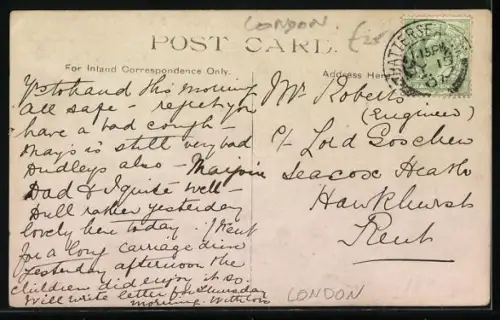 LONDON
POST CARD.
For Inland Correspondence Only.
Address
Yrs to hand this morning
all safe - regret you
have a bad cough -
May's is still very bad
Dudleys also -
Dad & I quite well -
Dull rather yesterday
lovely here today. I went
for a long carriage drive
yesterday afternoon the
children did enjoy it so.
Will write letter for Thursday
morning. With love
Mr Roberts
(Engineer)
c/o Lord Goschen
Seacox Heath
Hawkhurst
Kent
BATTERSEA
LONDON